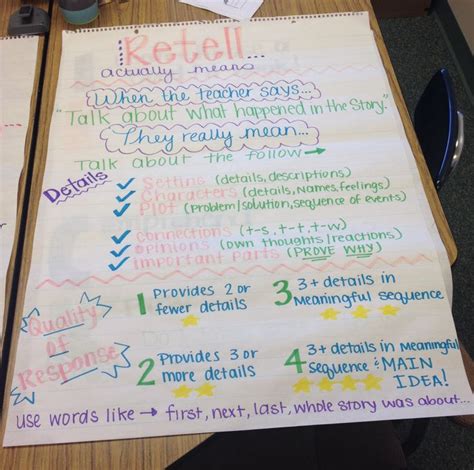 Retell...
actually means
When the teacher says...
"Talk about what happened in the Story."
They really mean...
Talk about the follow →
Details
✓ Setting (details, descriptions)
✓ Characters (details, Names, feelings)
✓ Plot (problem/solution, sequence of events)
✓ connections (t-s, t-t, t-w)
✓ opinions (own thoughts/reactions)
✓ important Parts (PROVE WHY)
Quality of Response
1 Provides 2 or fewer details
2 Provides 3 or more details
3 3+ details in Meaningful sequence
4 3+ details in Meaningful sequence & MAIN IDEA!
use words like → first, next, last, whole story was about...